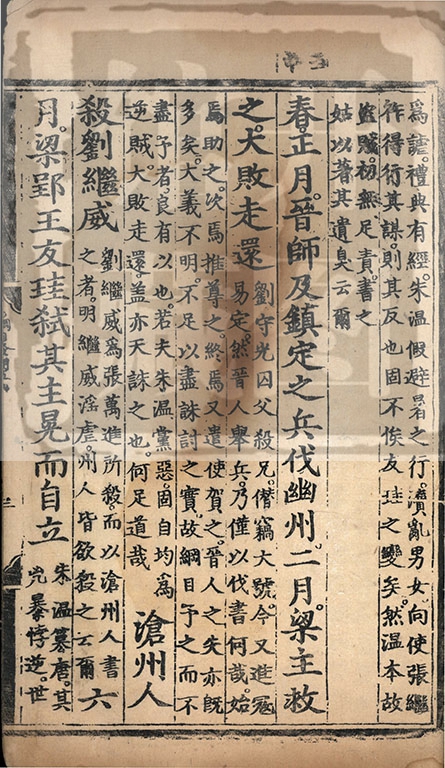 爲謹。禮典有經。朱溫假避暑之行。瀆亂男女。向使張繼
祚得行其謀。則其反也固不俟友珪之變矣。然溫本故
盜賤。初無足責。書之
姑以著其遺臭云爾
春。正月。晉師及鎮定之兵伐幽州。二月。梁主救
之。大敗走還
劉守光囚父殺兄。僭竊大號。今又進寇
易定。然晉人舉兵。乃僅以伐書何哉。始
焉助之。次焉推尊之。終焉又遣使賀之。晉人之失亦旣
多矣。大義不明。不足以盡誅討之實。故綱目予之而不
盡予者。良有以也。若夫朱溫黨惡。固自均爲
逆賊。大敗走還。蓋亦天誅之也。何足道哉
滄州人
殺劉繼威
劉繼威爲張萬進所殺。而以滄州人書
之者。明繼威淫虐。州人皆欲殺之云爾
六
月。梁郢王友珪弑其主晃而自立
朱溫篡唐。其
兇暴悖逆。世